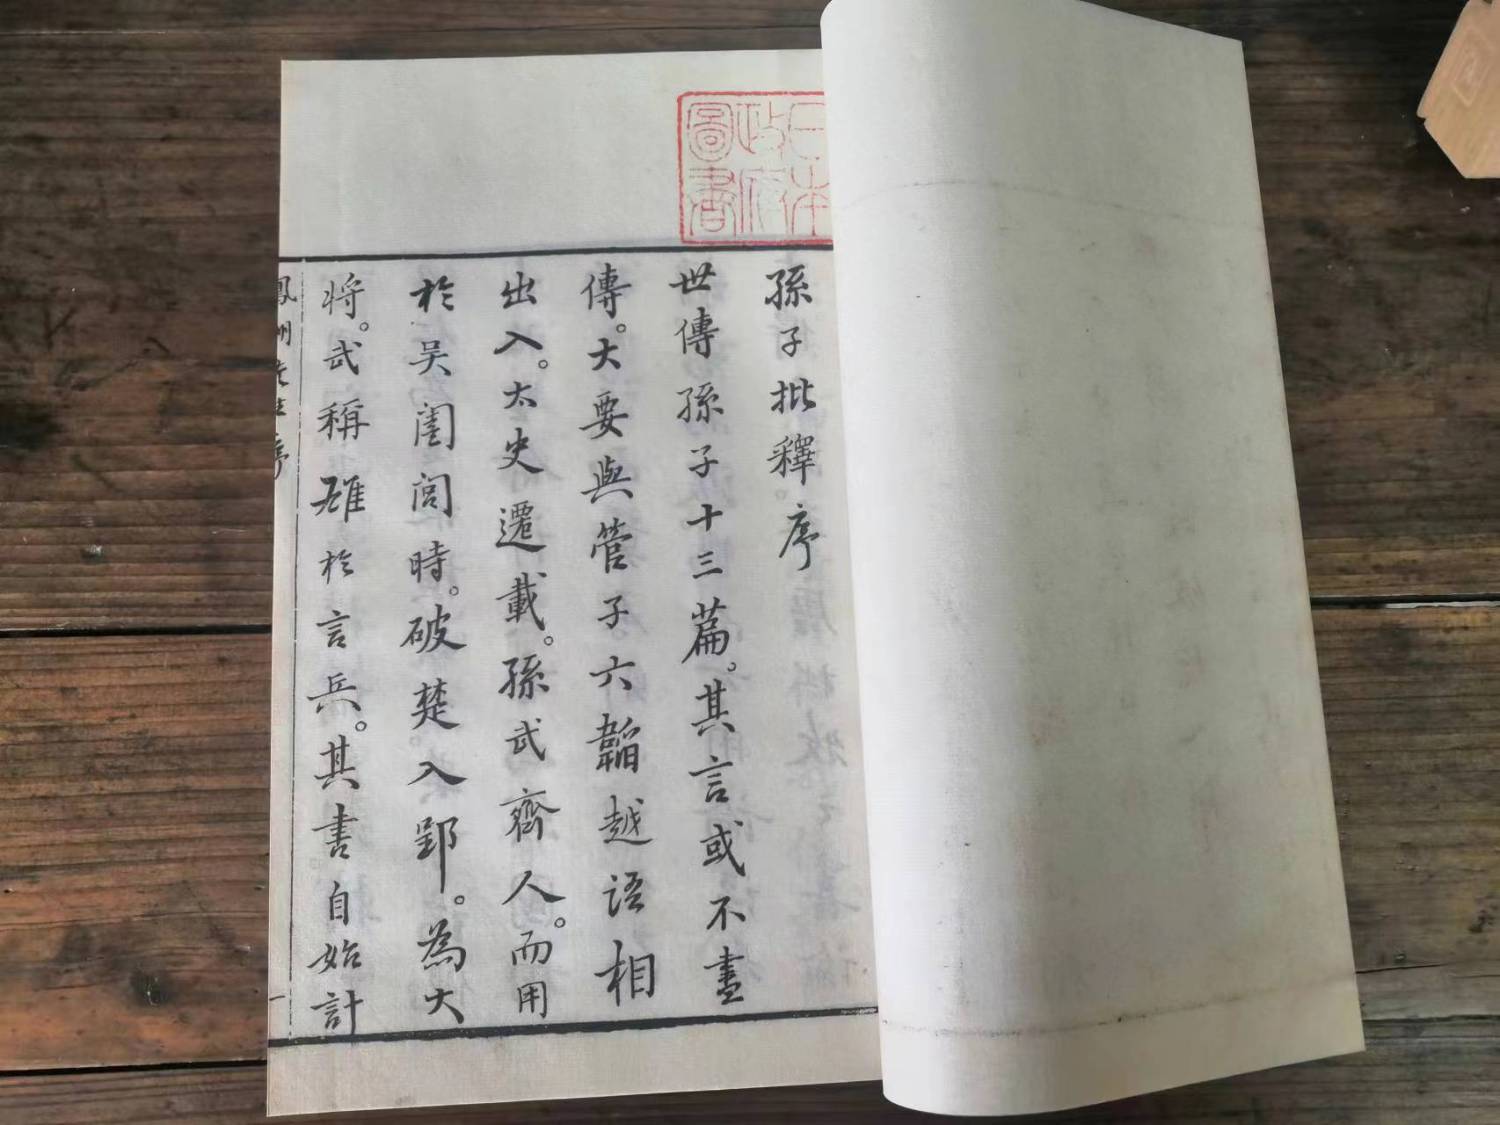 日本
政府
圖書
孫子批釋序
世傳孫子十三篇。其言或不盡
傳。大要與管子六韜越語相
出入。太史遷載。孫武齊人。而用
於吴闔閭時。破楚入郢。為大
將。武稱雄於言兵。其書自始計
鳳洲先生序
一